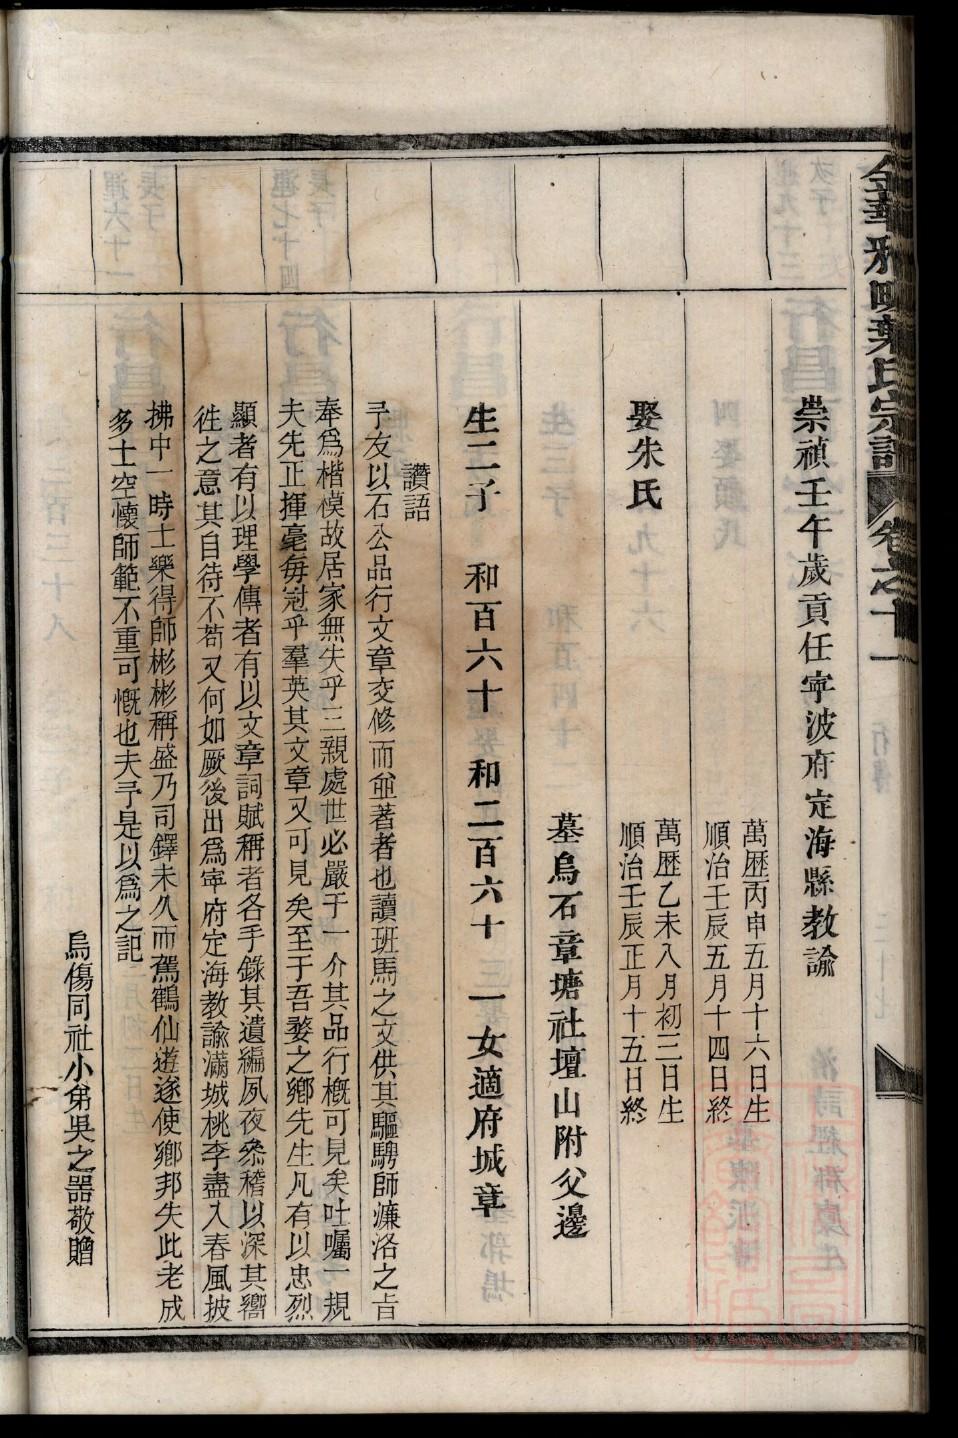 金華雅畈葉氏宗譜 卷之十一
崇禎壬午歲貢任寧波府定海縣教諭
萬歷丙申五月十六日生
順治壬辰五月十四日終
娶朱氏
萬歷乙未八月初三日生
順治壬辰正月十五日終
墓烏石章塘社壇山附父邊
生二子 和百六十 和二百六十 一女適府城章
讚語
予友以石公品行文章交修而並著者也讀班馬之文供其驅騁師濂洛之旨
奉為楷模故居家無失乎三親處世必嚴于一介其品行槪可見矣吐囑一規
夫先正揮毫每冠乎羣英其文章又可見矣至于吾婺之鄉先生凡有以忠烈
顯者有以理學傳者有以文章詞賦稱者各手錄其遺編夙夜叅稽以深其嚮
徃之意其自待不苟又何如厥後出為寧府定海教諭滿城桃李盡入春風披
拂中一時士樂得師彬彬稱盛乃司鐸未久而駕鶴仙遊遂使鄉邦失此老成
多士空懷師範不重可慨也夫予是以為之記
烏傷同社小弟吳之器敬贈